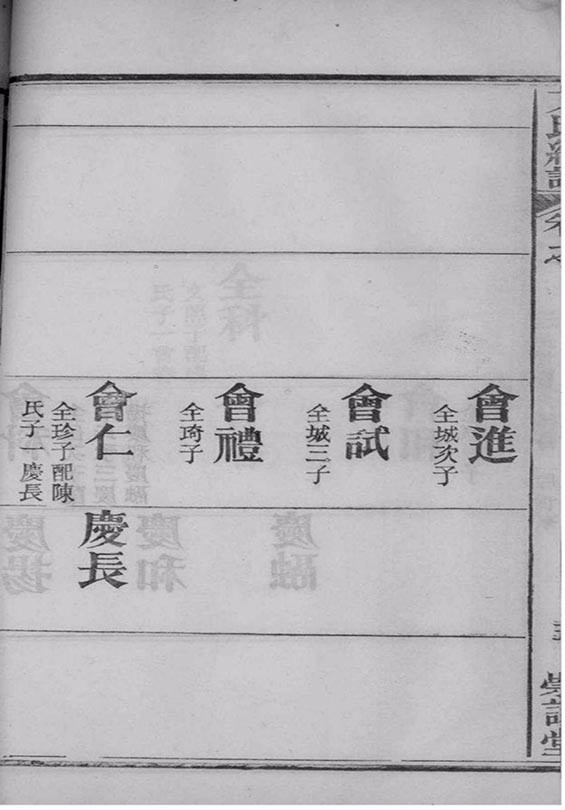 會進
全城次子
會試
全城三子
會禮
全琦子
會仁
全珍子配陳
氏子一慶長
慶長